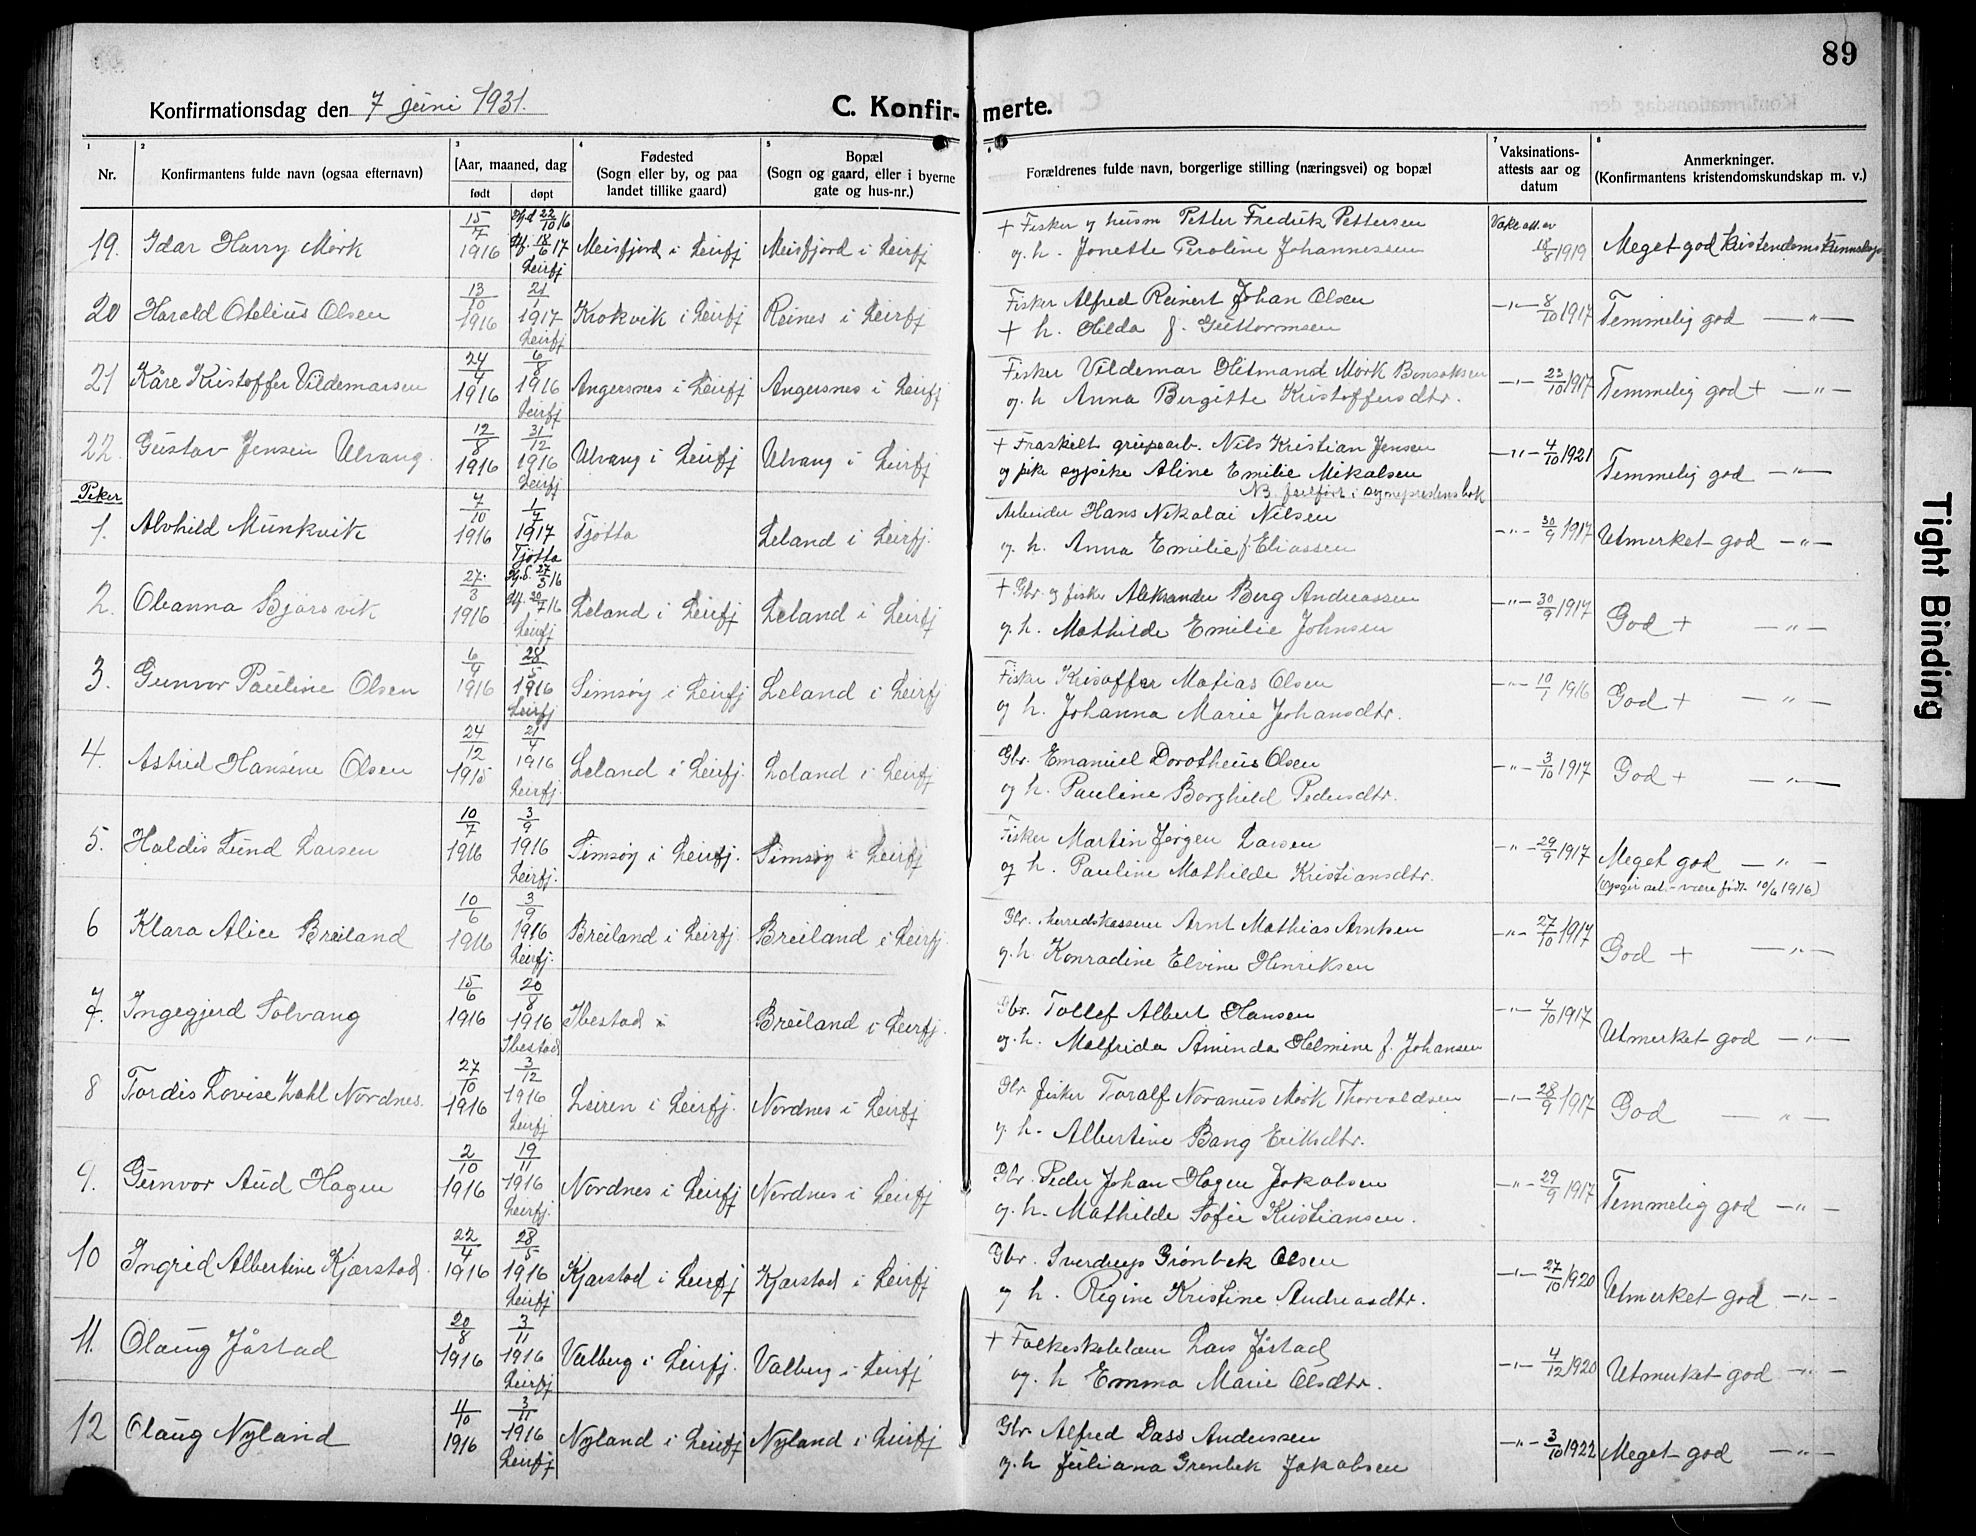 89
Konfirmationsdag den 7 juni 1931.
C. Konfir-merte.
1 Nr.
2 Konfirmantens fulde navn (ogsaa efternavn)
3 [Aar, maaned, dag
født døpt
4 Fødested
(Sogn eller by, og paa
landet tillike gaard)
5 Bopæl
(Sogn og gaard, eller i byerne
gate og hus-nr.)
6 Forældrenes fulde navn, borgerlige stilling (næringsvei) og bopæl
7 Vaksinations-
attests aar og
datum
8 Anmerkninger.
(Konfirmantens kristendomskundskap m. v.)
19. Idar Harry Mørk 15/7 1916 Hj.d 22/10 16 Stf. 18/6 17 Leirfj Meisfjord i Leirfj Meisfjord i Leirfj
+ Fisker og husm Petter Fredrik Pettersen
og h. Jonette Peroline Johannessen
Vaks att. av 18/8 1919 Meget god Kristendomskunnskap
20 Harald Otelius Olsen 13/10 1916 21/1 1917 Leirfj Krokvik i Leirfj Reines i Leirfj
Fisker Alfred Reinert Johan Olsen
+ h. Hilda f. Guttormsen
—„— 8/10 1917 Temmelig god —„—
21 Kåre Kristoffer Vildemarsen 24/4 1916 6/8 1916 Leirfj Angersnes i Leirfj Angersnes i Leirfj
Fisker Vildemar Hitmand Mørk Bensaksen
og. h Anna Bergitte Kristoffersdtr.
—„— 23/10 1917 Temmelig god + —„—
22. Gustav Jensen Ulvang. 12/8 1916 31/12 1916 Leirfj Ulvang i Leirfj Ulvang i Leirfj
+ Fraskilt grupearb. Nils Kristian Jensen
og pike sypike Aline Emilie Mikalsen
NB. feilført i sogneprestens bok
—„— 4/10 1921 Temmelig god —„—
Piker
1. Alvhild Munkvik 7/10 1916 1/7 1917 Tjøtta Tjøtta Leland i Leirfj.
Arbeider Hans Nikolai Nilsen
og. h. Anna Emilie f. Eliassen
—„— 30/9 1917 Utmerket god —„—
2. Oleanna Bjørsvik 27/3 1916 Hj.d. 27/3 16 Stf. 30/7 16 Leirfj Leland i Leirfj Leland i Leirfj
+ Gbr og fisker Aleksander Berg Andreassen
og. h. Mathilde Emilie Johnsen
—„— 30/9 1917 God + —„—
3. Gunvor Pauline Olsen 6/4 1916 28/5 1916 Leirfj Simsøy i Leirfj Leland i Leirfj
Fisker Krisoffer Matias Olsen
og h. Johanna Marie Johansdtr.
—„— 10/1 1916 God + —„—
4. Astrid Hansine Olsen 24/12 1915 21/4 1916 Leirfj. Leland i Leirfj. Leland i Leirfj
Gbr. Emanuel Dorotheus Olsen
og h. Pauline Borghild Pedersdtr.
—„— 3/10 1917 God + —„—
5. Haldis Lund Larsen 10/7 1916 3/9 1916 Leirfj. Simsøy i Leirfj. Simsøy i Leirfj
Fisker Martin Jørgen Larsen
og h. Pauline Mathilde Kristiansdtr.
—„— 29/9 1917 Meget god —„—
(opgir selv være født 10/6 1916)
6 Klara Alice Breiland 10/6 1916 3/9 1916 Leirfj. Breiland i Leirfj. Breiland i Leirfj.
Gbr. herredskasserer Arnt Mathias Arntsen
og. h. Konradine Elvine Henriksen
—„— 27/10 1917 God + —„—
7. Ingegjerd Solvang 15/6 1916 20/8 1916 Ibestad Ibestad i Breiland i Leirfj.
Gbr. Tollef Albert Hansen
og. h. Malfrida Aminda Helmine f. Johansen
—„— 4/10 1917 Utmerket god —„—
8 Tordis Lovise Zahl Nordnes. 27/10 1916 3/12 1916 Leirfj Leiren i Leirfj. Nordnes i Leirfj
Gbr fisker Toralf Noranus Mørk Thorvaldsen
og. h. Albertine Bang Eriksdtr.
—„— 28/9 1917 God —„—
9. Gunvor Aud Hagen 2/10 1916 19/11 1916 Leirfj. Nordnes i Leirfj Nordnes i Leirfj
Gbr. Peder Johan Hagen Jakobsen
og. h. Mathilde Sofie Kristiansen.
—„— 29/9 1917 Temmelig god —„—
10 Ingrid Albertine Kjærstad. 22/4 1916 28/5 1916 Leirfj Kjærstad i Leirfj Kjærstad i Leirfj
Gbr. Sverdrup Grønbek Olsen
og h. Regine Kristine Andreasdtr.
—„— 27/10 1920 Utmerket god —„—
11. Olaug Jåstad 20/8 1916 3/11 1916 Leirfj Valberg i Leirfj. Valberg i Leirfj
+ Folkeskolelærer Lars Jåstad
og. h Emma Marie Olsdtr.
—„— 4/12 1920 Utmerket god —„—
12 Olaug Nyland 11/10 1916 3/11 1916 Leirfj Nyland i Leirfj Nyland i Leirfj
Gbr. Alfred Dass Anderssen
og. h Juliana Grønbek Jakobsen
—„— 3/10 1922 Meget god —„—
Tight Binding